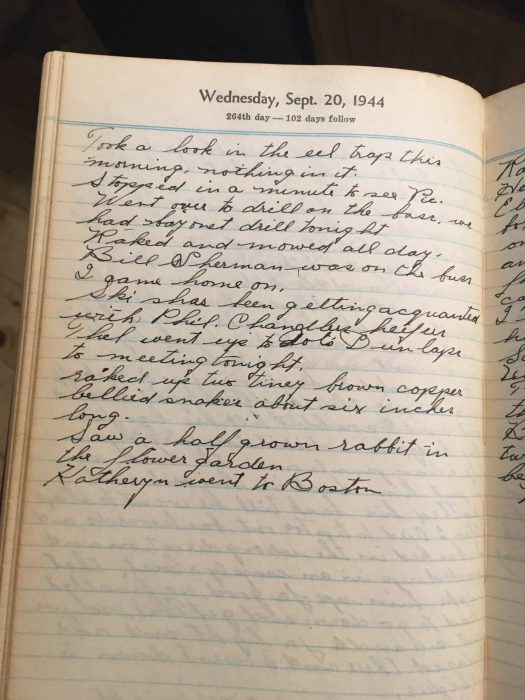 Wednesday, Sept. 20, 1944
264th day — 102 days follow
Took a look in the eel trap this
morning, nothing in it.
Stopped in a minute to see Pic.
Went over to drill on the buss, we
had bayonet drill tonight
Raked and mowed all day.
Bill Sherman was on the buss
I came home on.
Ski shas been getting acquanted
with Phil. Chandlers heifer
Thel went up to Dunlaps
to meeting tonight.
raked up two tiney brown copper
bellied snakes about six inches
long.
Saw a half grown rabbit in
the flower garden
Katheryn went to Boston